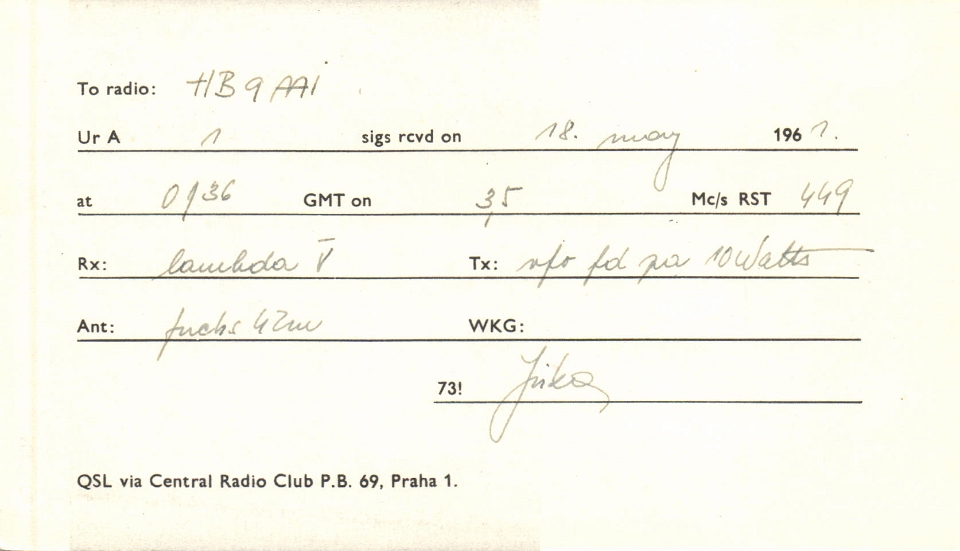 To radio: HB9AAI
Ur A 1 sigs rcvd on 18. may 1961.
at 0136 GMT on 3,5 Mc/s RST 449
Rx: lambda V Tx: vfo fd pa 10Watts
Ant: fuchs 42m WKG:
73! Jirka
QSL via Central Radio Club P.B. 69, Praha 1.